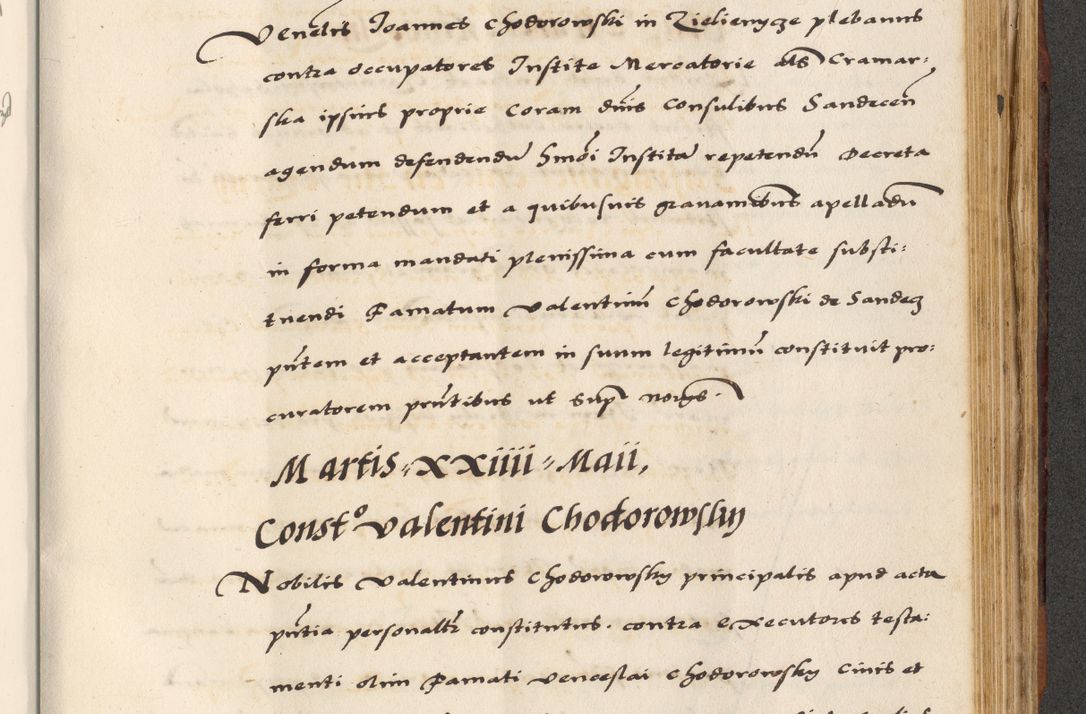 Venelis Ioannes Chodorowski in Zielienycze plebanus
contra occupatores Institę Mercatorię als Cramar:
ska ipsius proprię Coram dnis Consulibus Sandecen
agendum defendendu Institã repetendũ Decreta
ferri petendum et a quibusuis grauaminibus apellandũ
in forma mandati plenissima cum facultate substi:
tuendi Famatum Valentinũ Chodorowski de Sandecz
pñtem et acceptantem in suum legitimũ constituit pro:
curatorem pñtibus ut supᵃ
Martis XXiiii Maii,
Constᵒ Valentini Chodorowsky
Nobilis Valentinus Chodorowsky principalis apud acta
pñtia personaltr constitutus. contra executores testa:
menti olim Famati Venceslai Chodorowsky Ciuis et